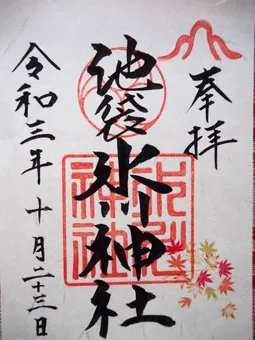 奉拝
池袋氷川神社
令和三年十月二十三日
氷川
神社